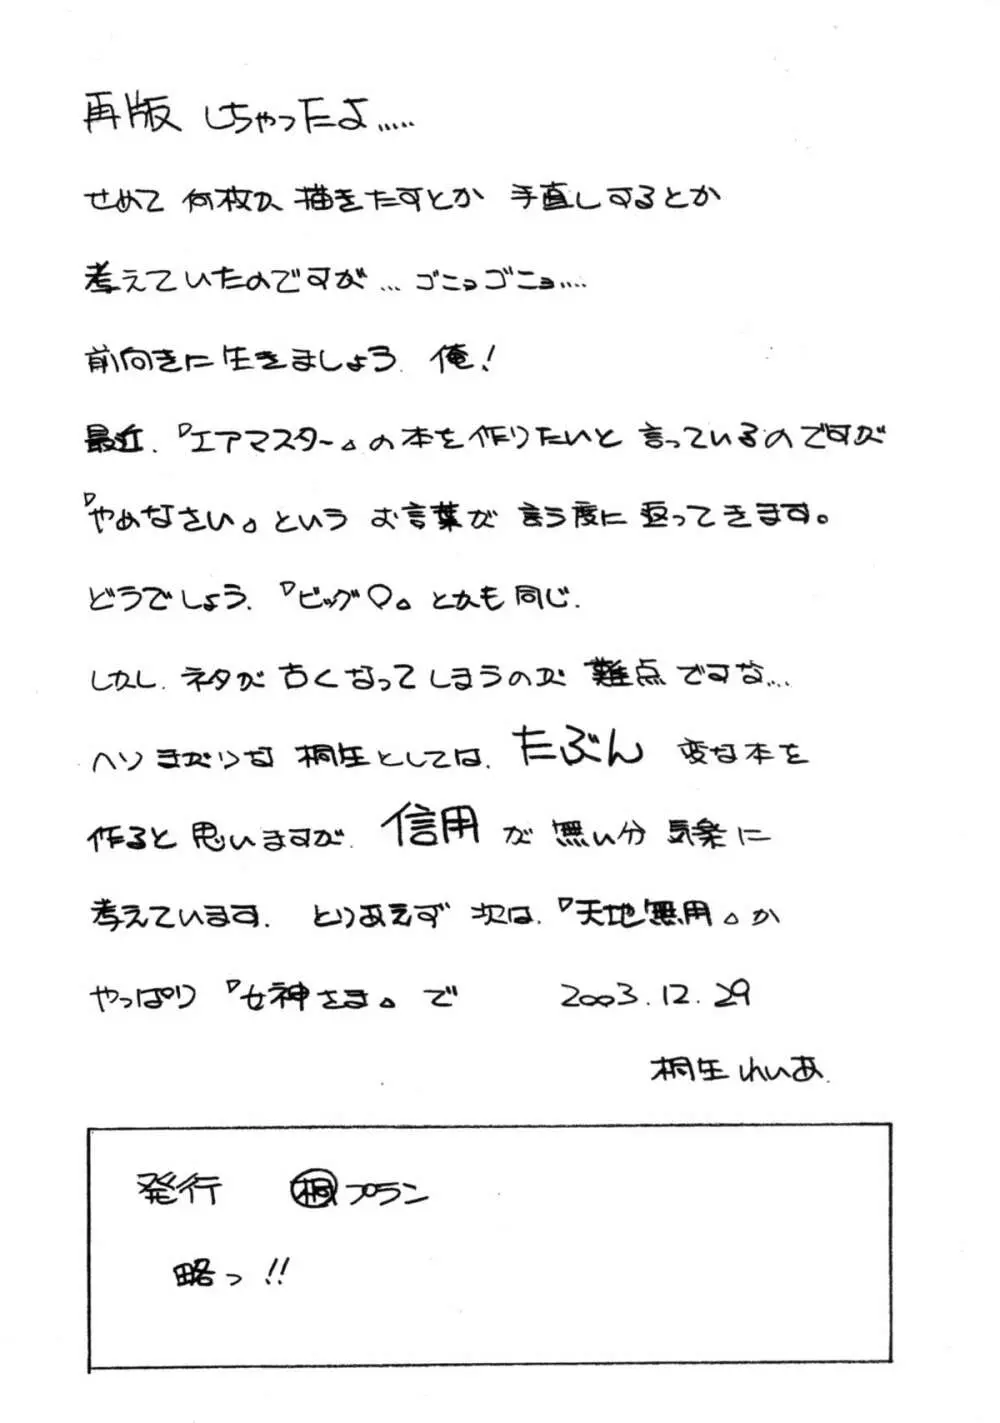 再版 しちゃったよ.....
せめて 何枚か 描きたすとか 手直しするとか
考えていたのですが... ゴニョゴニョ....
前向きに 生きましょう. 俺!
最近.『エアマスター』の本を作りたいと 言っているのですが
『やめなさい』という お言葉が 言う度に 返ってきます。
どうでしょう.『ビッグO』とかも同じ.
しかし. ネタが 古くなってしまうのが 難点ですな....
ヘソまがりな 桐生としては. たぶん 変な本を
作ると 思いますが. 信用が 無い分 気楽に
考えています. とりあえず 次は.『天地無用』か
やっぱり『女神さま』で 2003.12.29
桐生れいあ.
発行 桐プラン
略っ!!